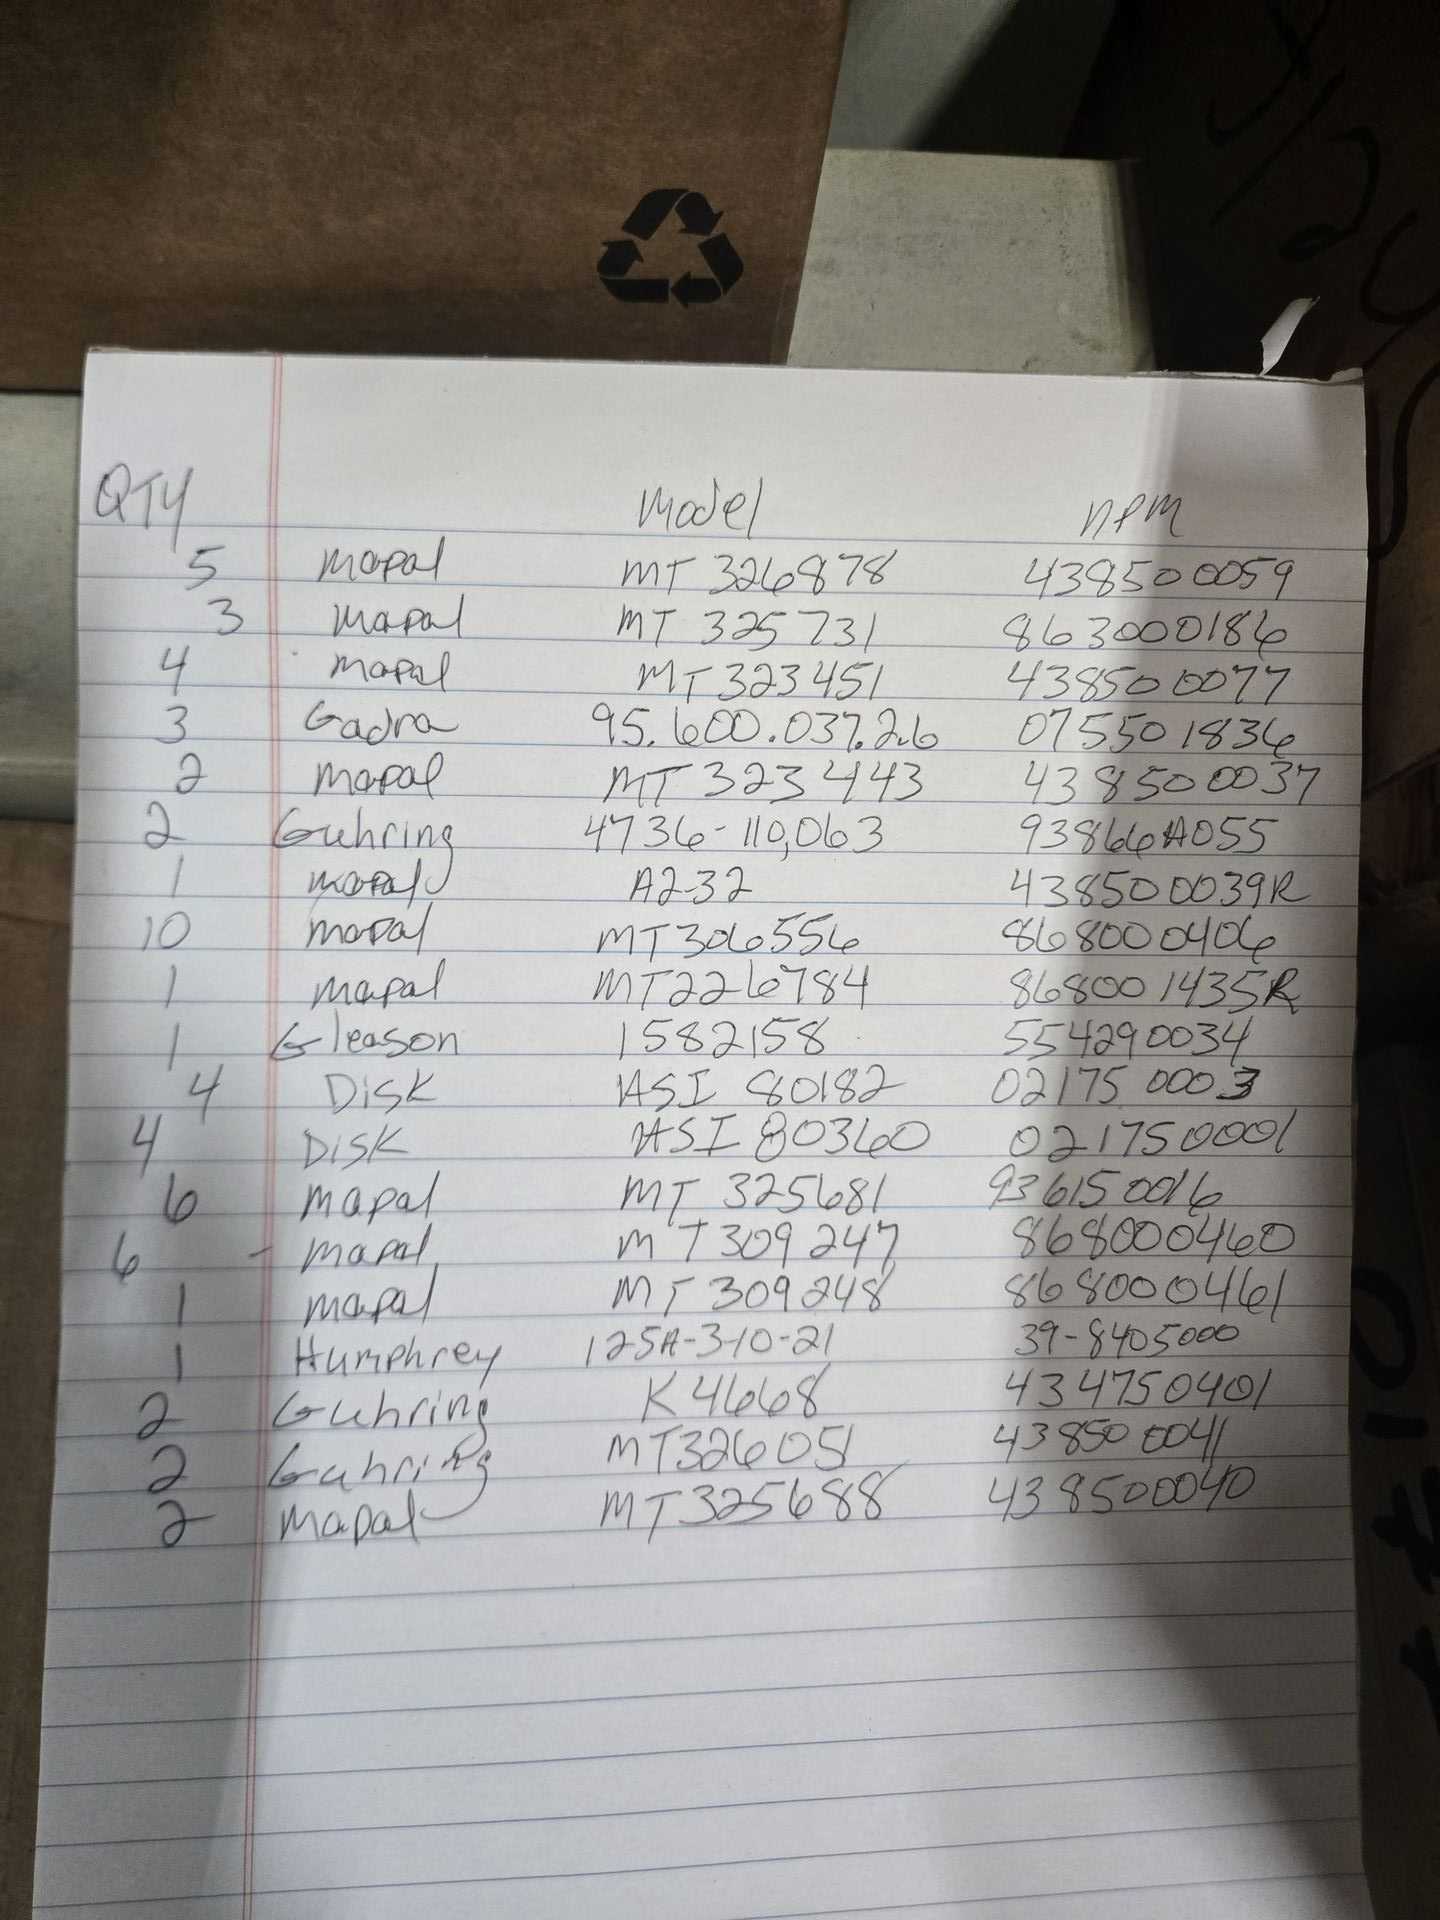 QTY Model NPM
5 Mapal MT 326878 438500059
3 Mapal MT 325731 863000186
4 Mapal MT323451 438500077
3 Gadra 95.600.037.2.6 075501836
2 Mapal MT 323443 438500037
2 Guhring 4736-110,063 93866A055
1 Mapal A2-32 438500039R
10 Mapal MT306556 868000406
1 Mapal MT226784 868001435R
1 Gleason 1582158 554290034
4 Disk ASI 80182 021750003
4 Disk ASI 80360 021750001
6 Mapal MT 325681 936150016
6 - Mapal MT309247 868000460
1 Mapal MT 309248 868000461
1 Humphrey 125A-3-10-21 39-8405000
2 Guhring K4668 434750401
2 Guhring MT326051 438500041
2 Mapal MT325688 438500040